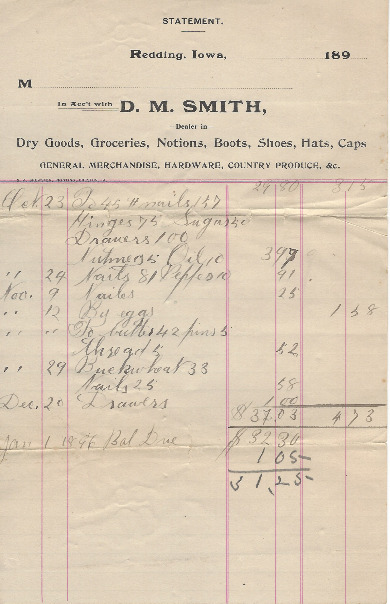 STATEMENT.
Redding, Iowa, 189
M
In Acc't with D. M. SMITH,
Dealer in
Dry Goods, Groceries, Notions, Boots, Shoes, Hats, Caps
GENERAL MERCHANDISE, HARDWARE, COUNTRY PRODUCE, &c.
29,80 315
Oct 23 To 45 # nails 157
Hinges 75 Sugar 50
Drawers 100
Nutmeg 5 Oil 10 397
" 24 Nails 81 Pepper 10 91
Nov. 9 Nails 25
" 12 By eggs 1 58
" " To butter 42 pins 5
thread 5 52
" 29 Buckwheat 33
Nails 25 58
Dec. 20 Drawers 1 00
$ 37.03 473
Jan 1 1896 Bal Due $ 32 30
1 05
31,25